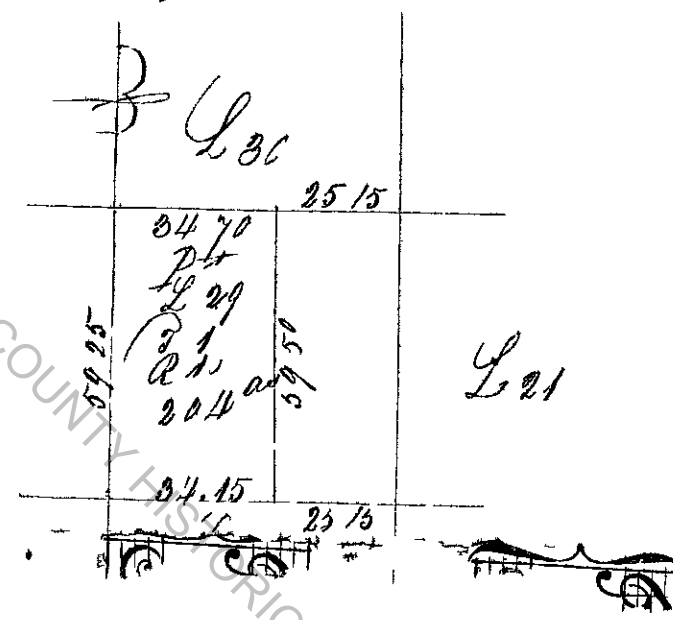 L 30
25 15
34 70
Pt
L 29
T 1
R 1
204 a
59 25
59 50
L 21
34.15
25 15
COUNTY HISTORIC